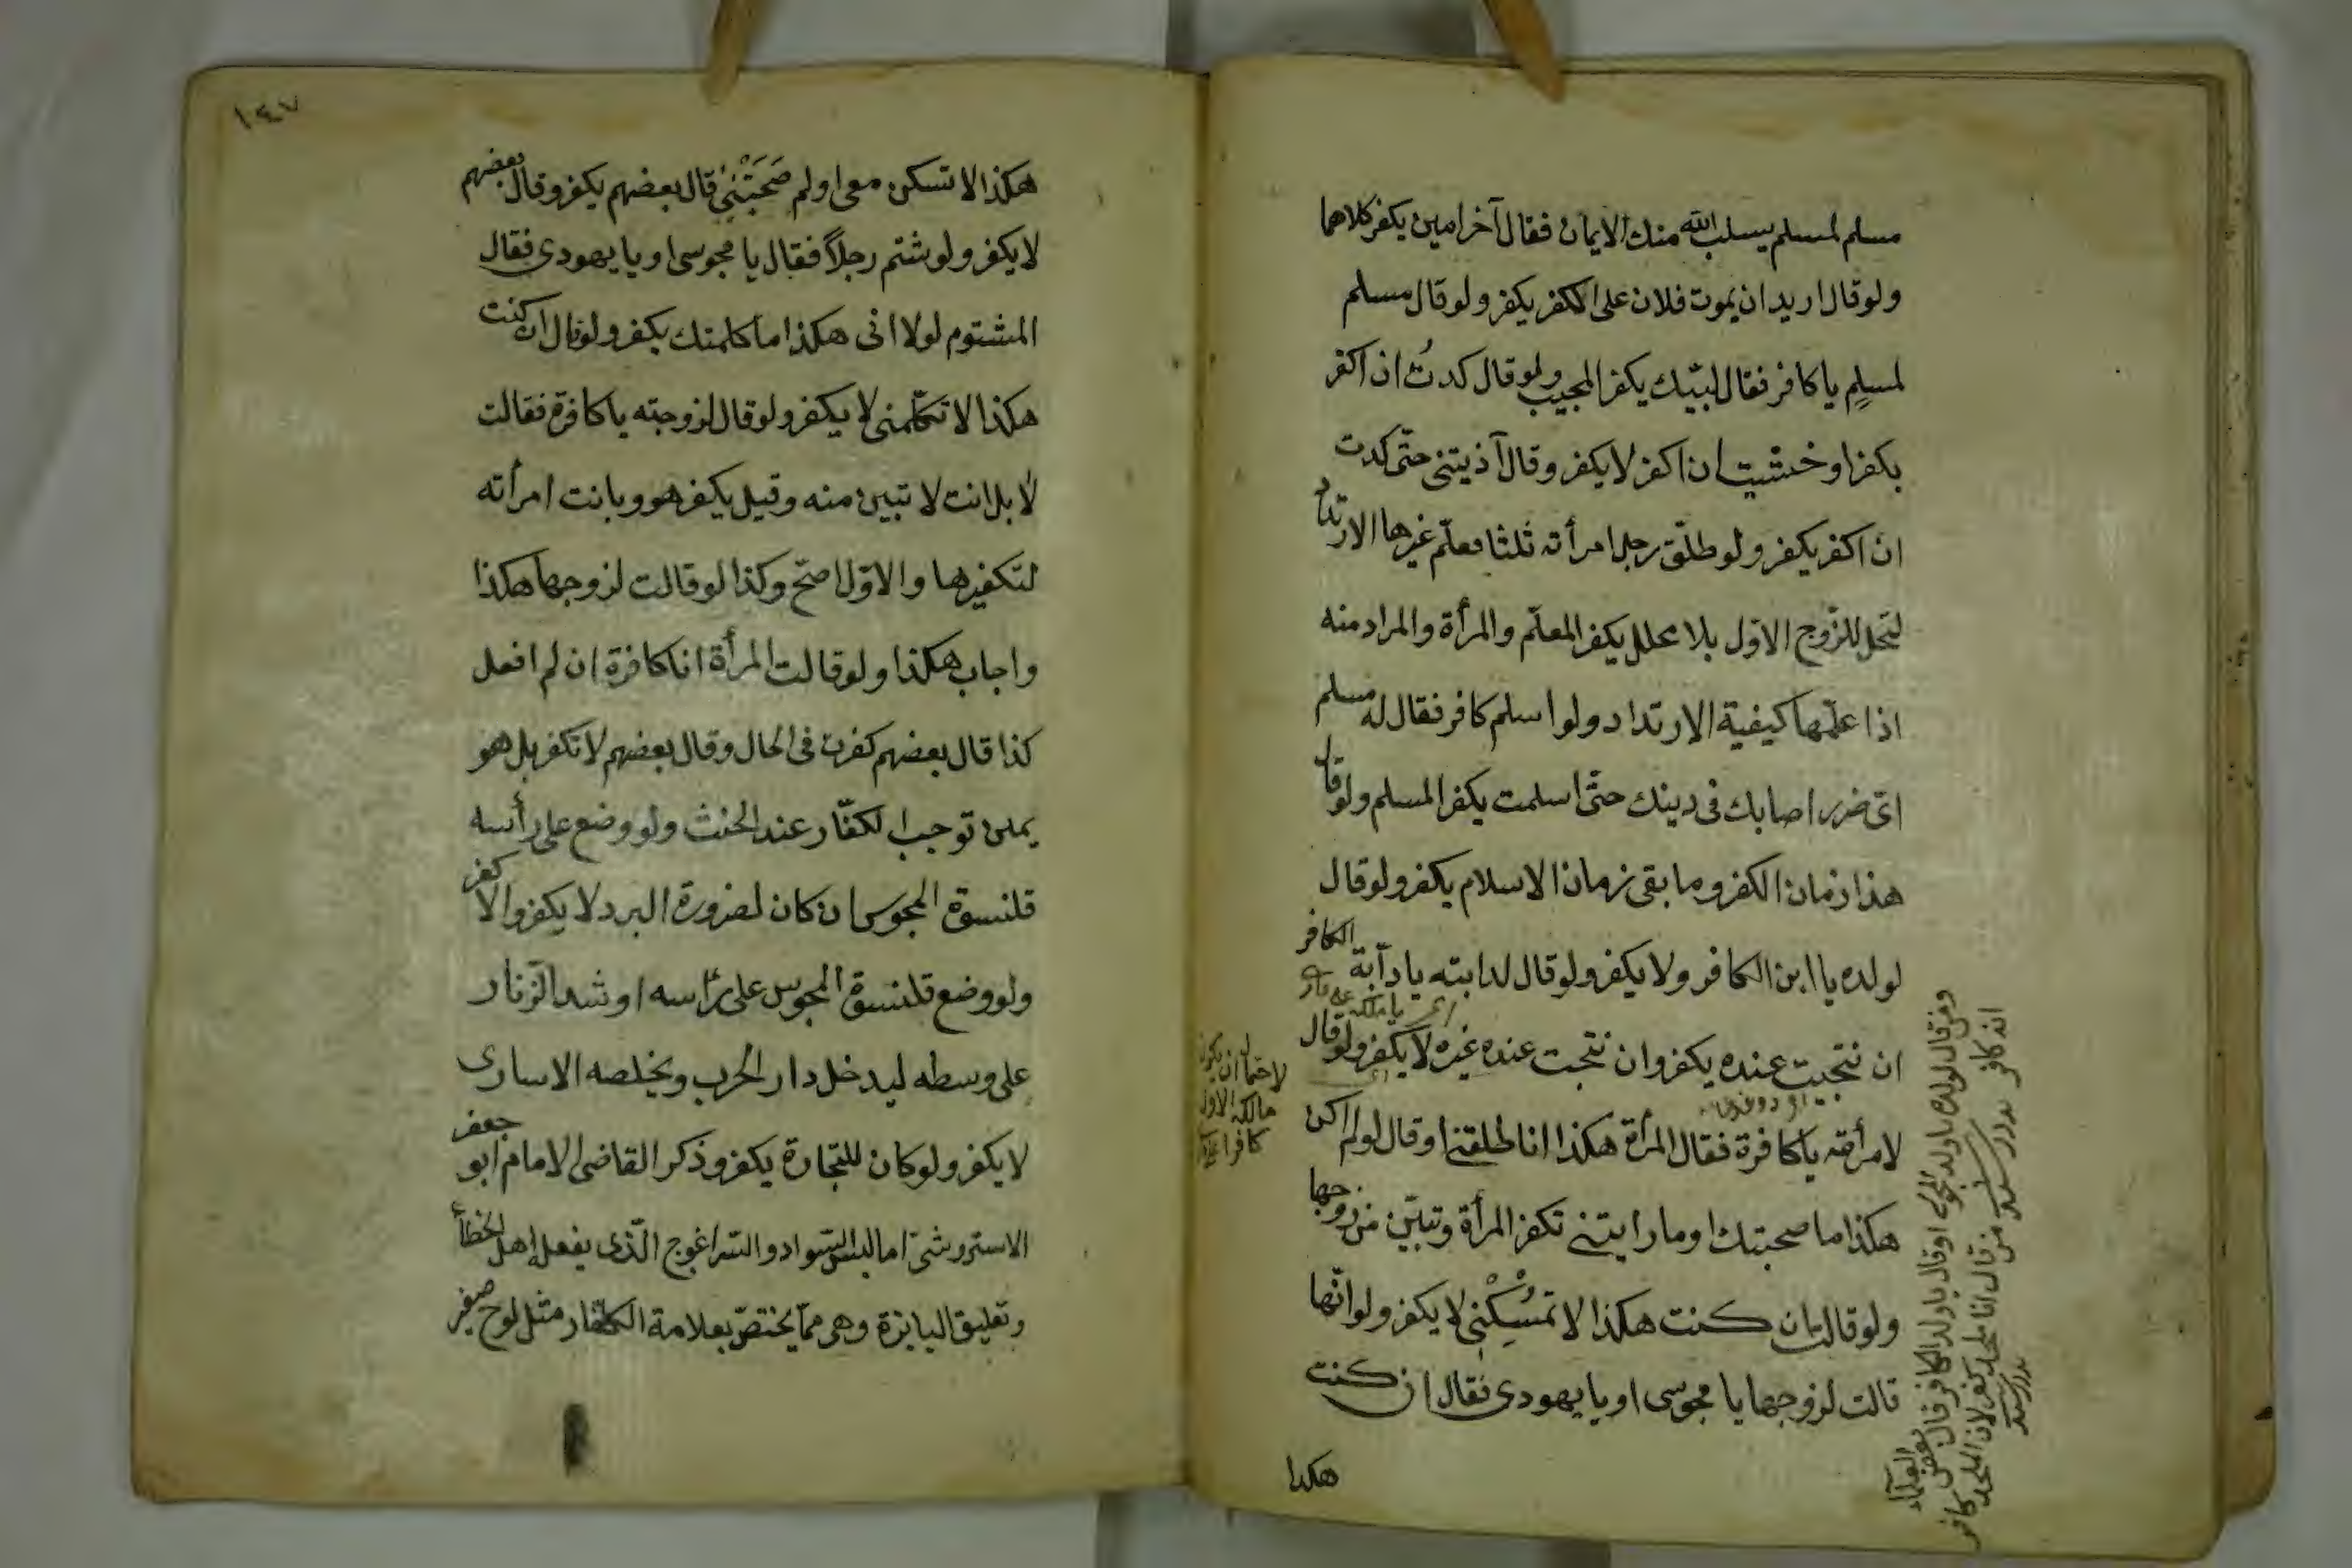 مسلم لمسلم يسلب الله منك الايمان فقال آخر امين يكفر كلاهما
ولو قال اريد ان يموت فلان على الكفر يكفر ولو قال مسلم
لمسلم يا كافر فقال لبيّك يكفر المجيب ولو قال كدتُ ان اكفر
يكفر او خشيت ان اكفر لا يكفر وقال آذيتنى حتّى كدت
ان اكفر يكفر ولو طلّق رجل امرأته ثلثا فعلّم غيرها الارتداد
لتحل للزّوج الاوّل بلا محلل يكفر المعلّم والمرأة والمراد منه
اذا علّمها كيفية الارتداد ولو اسلم كافر فقال له مسلم
اىّ ضرر اصابك فى دينك حتّى اسلمت يكفر المسلم ولو قال
هذا زمان الكفر وما بقى زمان الاسلام يكفر ولو قال
لولده يا ابن الكافر ولا يكفر ولو قال لدابته يا دآبة الكافر
ان نتجت عنده يكفر وان نتجت عند غيره لا يكفر ولو قال
لامرأته يا كافرة فقال المرأة هكذا انا طلقنى او قال لو لم اكن
هكذا ما صحبتك او ما رايتنى تكفر المرأة وتبيّن من زوجها
ولو قالت ان كنت هكذا لا تمْسِكْنى لا يكفر ولو انّها
قالت لزوجها يا مجوسى او يا يهودى فقال ان كنت
هكذا
لاحتمال ان يكون
مالكه الاول
كافرا
ومن قال لولده يا ولد المجوسى او قال يا ولد الكافر قال بعض العلماء
انه كافر من قال انا ملحد كفر لان الملحد كافر
١٤٧
هكذا لا تسكن معى او لم صَحَبْتَنِى قال بعضهم يكفر وقال بعضهم
لا يكفر ولو شتم رجلاً فقال يا مجوسى او يا يهودى فقال
المشتوم لولا انى هكذا ما كلمتك يكفر ولو قال ان كنت
هكذا لا تكلّمنى لا يكفر ولو قال لزوجته يا كافرة فقالت
لا بل انت لا تبين منه وقيل يكفر هو وبانت امرأته
لتكفيرها والاوّل اصحّ وكذا لو قالت لزوجها هكذا
واجاب هكذا ولو قالت المرأة انا كافرة ان لم افعل
كذا قال بعضهم كفرت فى الحال وقال بعضهم لا تكفر بل هو
يمين توجب الكفّار عند الحنث ولو وضع على رأسه
قلنسوة المجوس ان كان لضرورة البرد لا يكفر والا كفر
ولو وضع قلنسوة المجوس على رأسه او شد الزّنار
على وسطه ليدخل دار الحرب ويخلصه الاسارى
لا يكفر ولو كان للتجارة يكفر وذكر القاضى الامام ابو جعفر
الاستروشنىّ اما لبس السّواد والسّراغوج الّذى يفعل اهل الخطأ
وتعليق اليابزة وهى ممّا يختصّ بعلامة الكفّار مثل لوح صغير